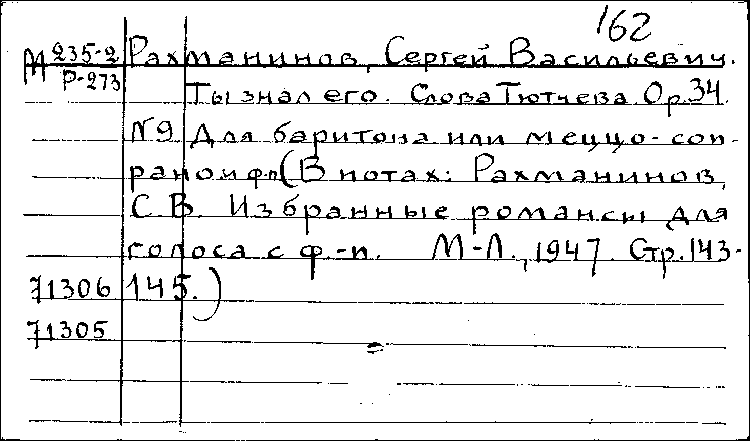 162
М 235-2 Рахманинов, Сергей Васильевич.
Р-273 Ты знал его. Слова Тютчева. Ор.34.
N9 Для баритона или меццо-соп-
рано и фп (В нотах: Рахманинов,
С.В. Избранные романсы для
голоса с ф.-п. М-Л., 1947. Стр.143-
71306 145.)
71305